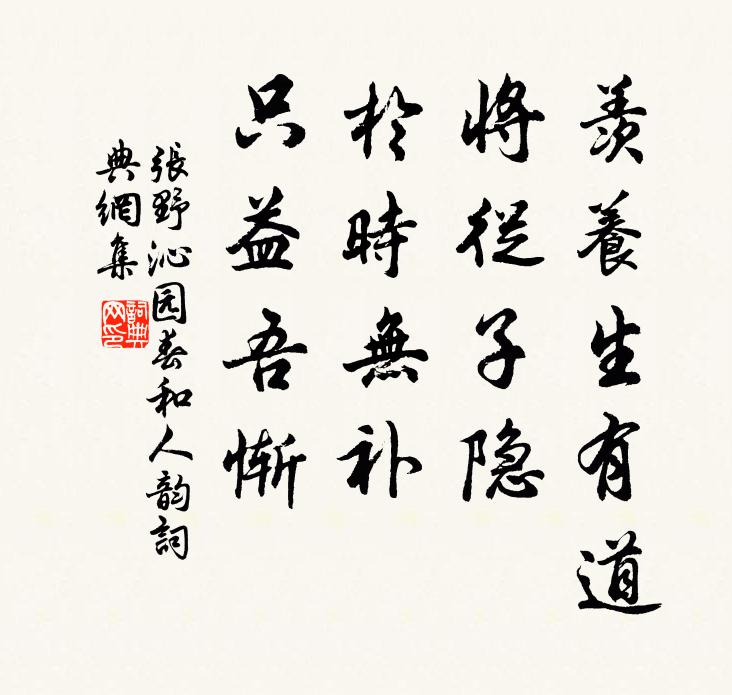 羨養生有道
將從子隐
於時無补
只益吾慚
張野沁园春和人韵詞
典網集
詞典
网印